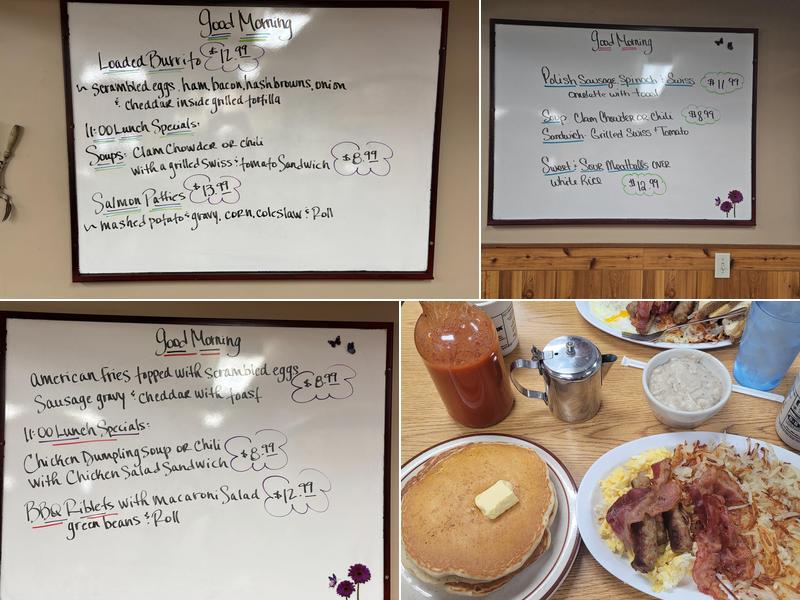 Good Morning
Loaded Burrito $12.99
~ scrambled eggs, ham, bacon, hashbrowns, onion
& cheddar inside grilled tortilla
11:00 Lunch Specials:
Soups: Clam Chowder or Chili
with a grilled Swiss & tomato Sandwich $8.99
Salmon Patties $13.99
~ mashed potato & gravy, corn, coleslaw & Roll
Good Morning
Polish Sausage Spinach & Swiss $11.99
omelette with toast
Soup Clam Chowder or Chili $8.99
Sandwich- Grilled Swiss & Tomato
Sweet & Sour Meatballs over
White Rice $12.99
Good Morning
American fries topped with scrambled eggs
Sausage gravy & cheddar with toast $8.99
11:00 Lunch Specials:
Chicken Dumpling Soup or Chili
with Chicken Salad Sandwich $8.99
BBQ Riblets with macaroni Salad $12.99
green beans & Roll